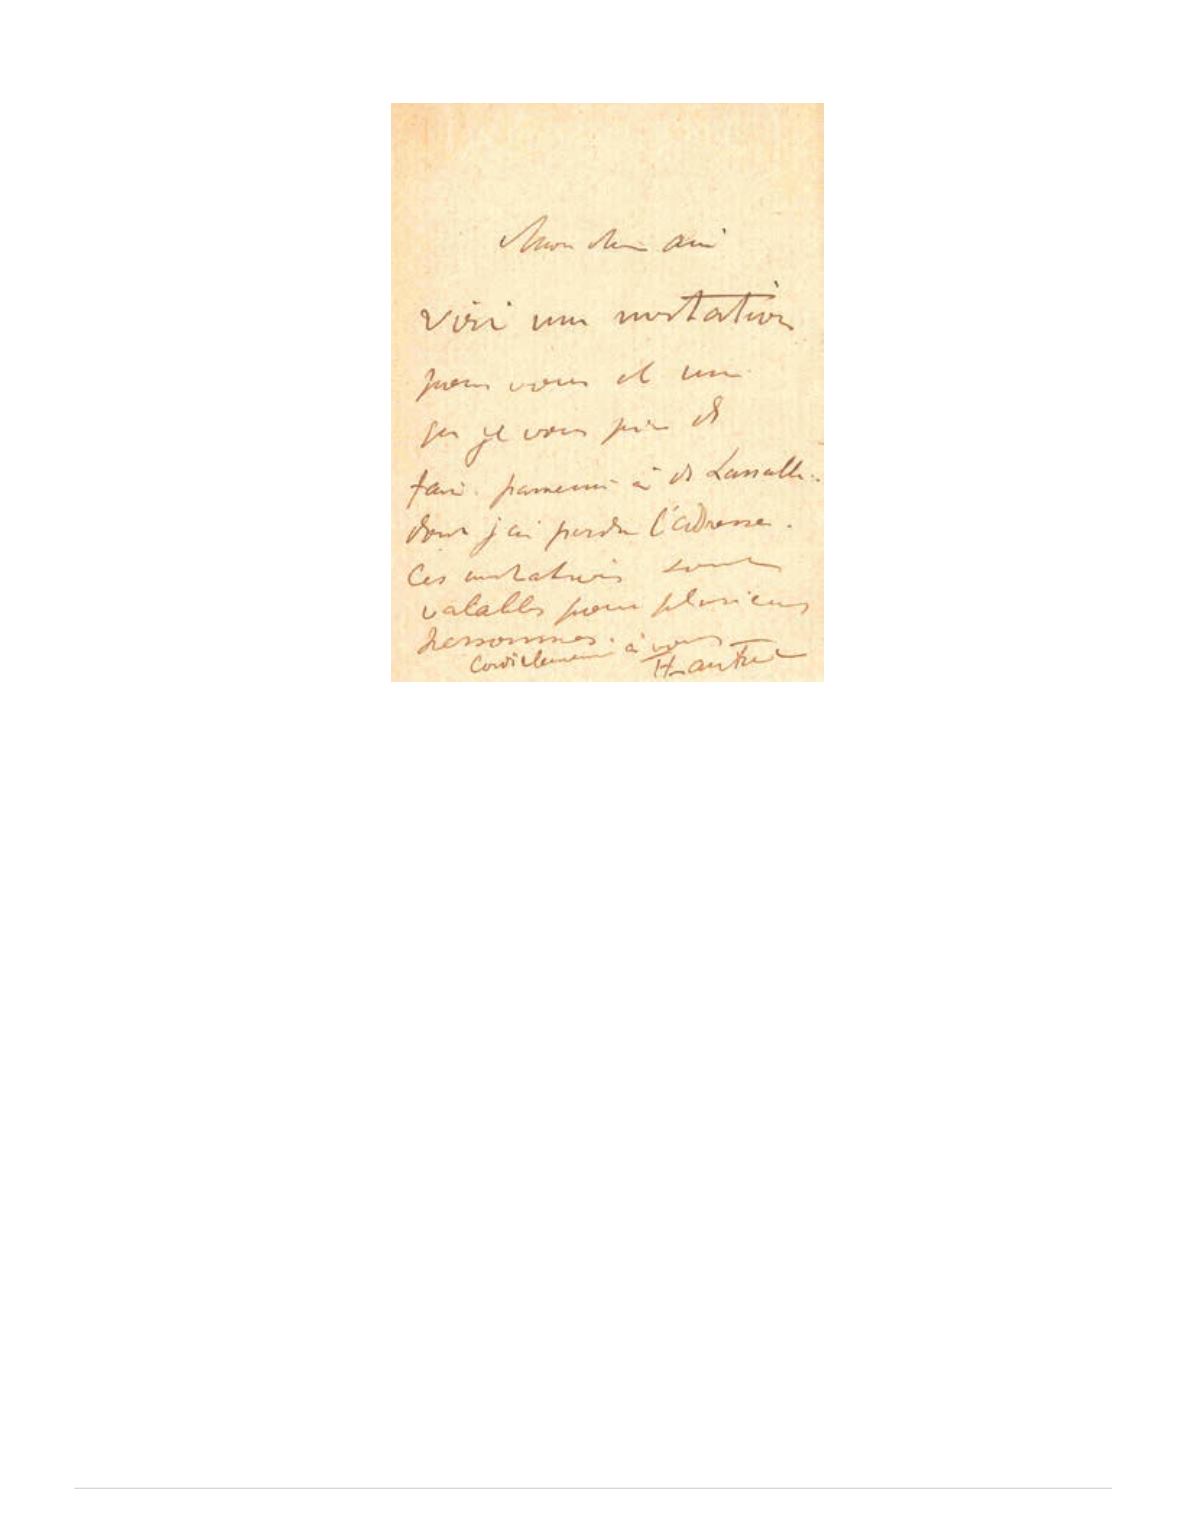 Mon cher ami
Voici une invitation
pour vous et une
que je vous prie de
faire parvenir à de Lassalle.
dont j'ai perdu l'adresse.
Ces invitations sont
valables pour plusieurs
personnes.
Cordialement à vous
HLautrec